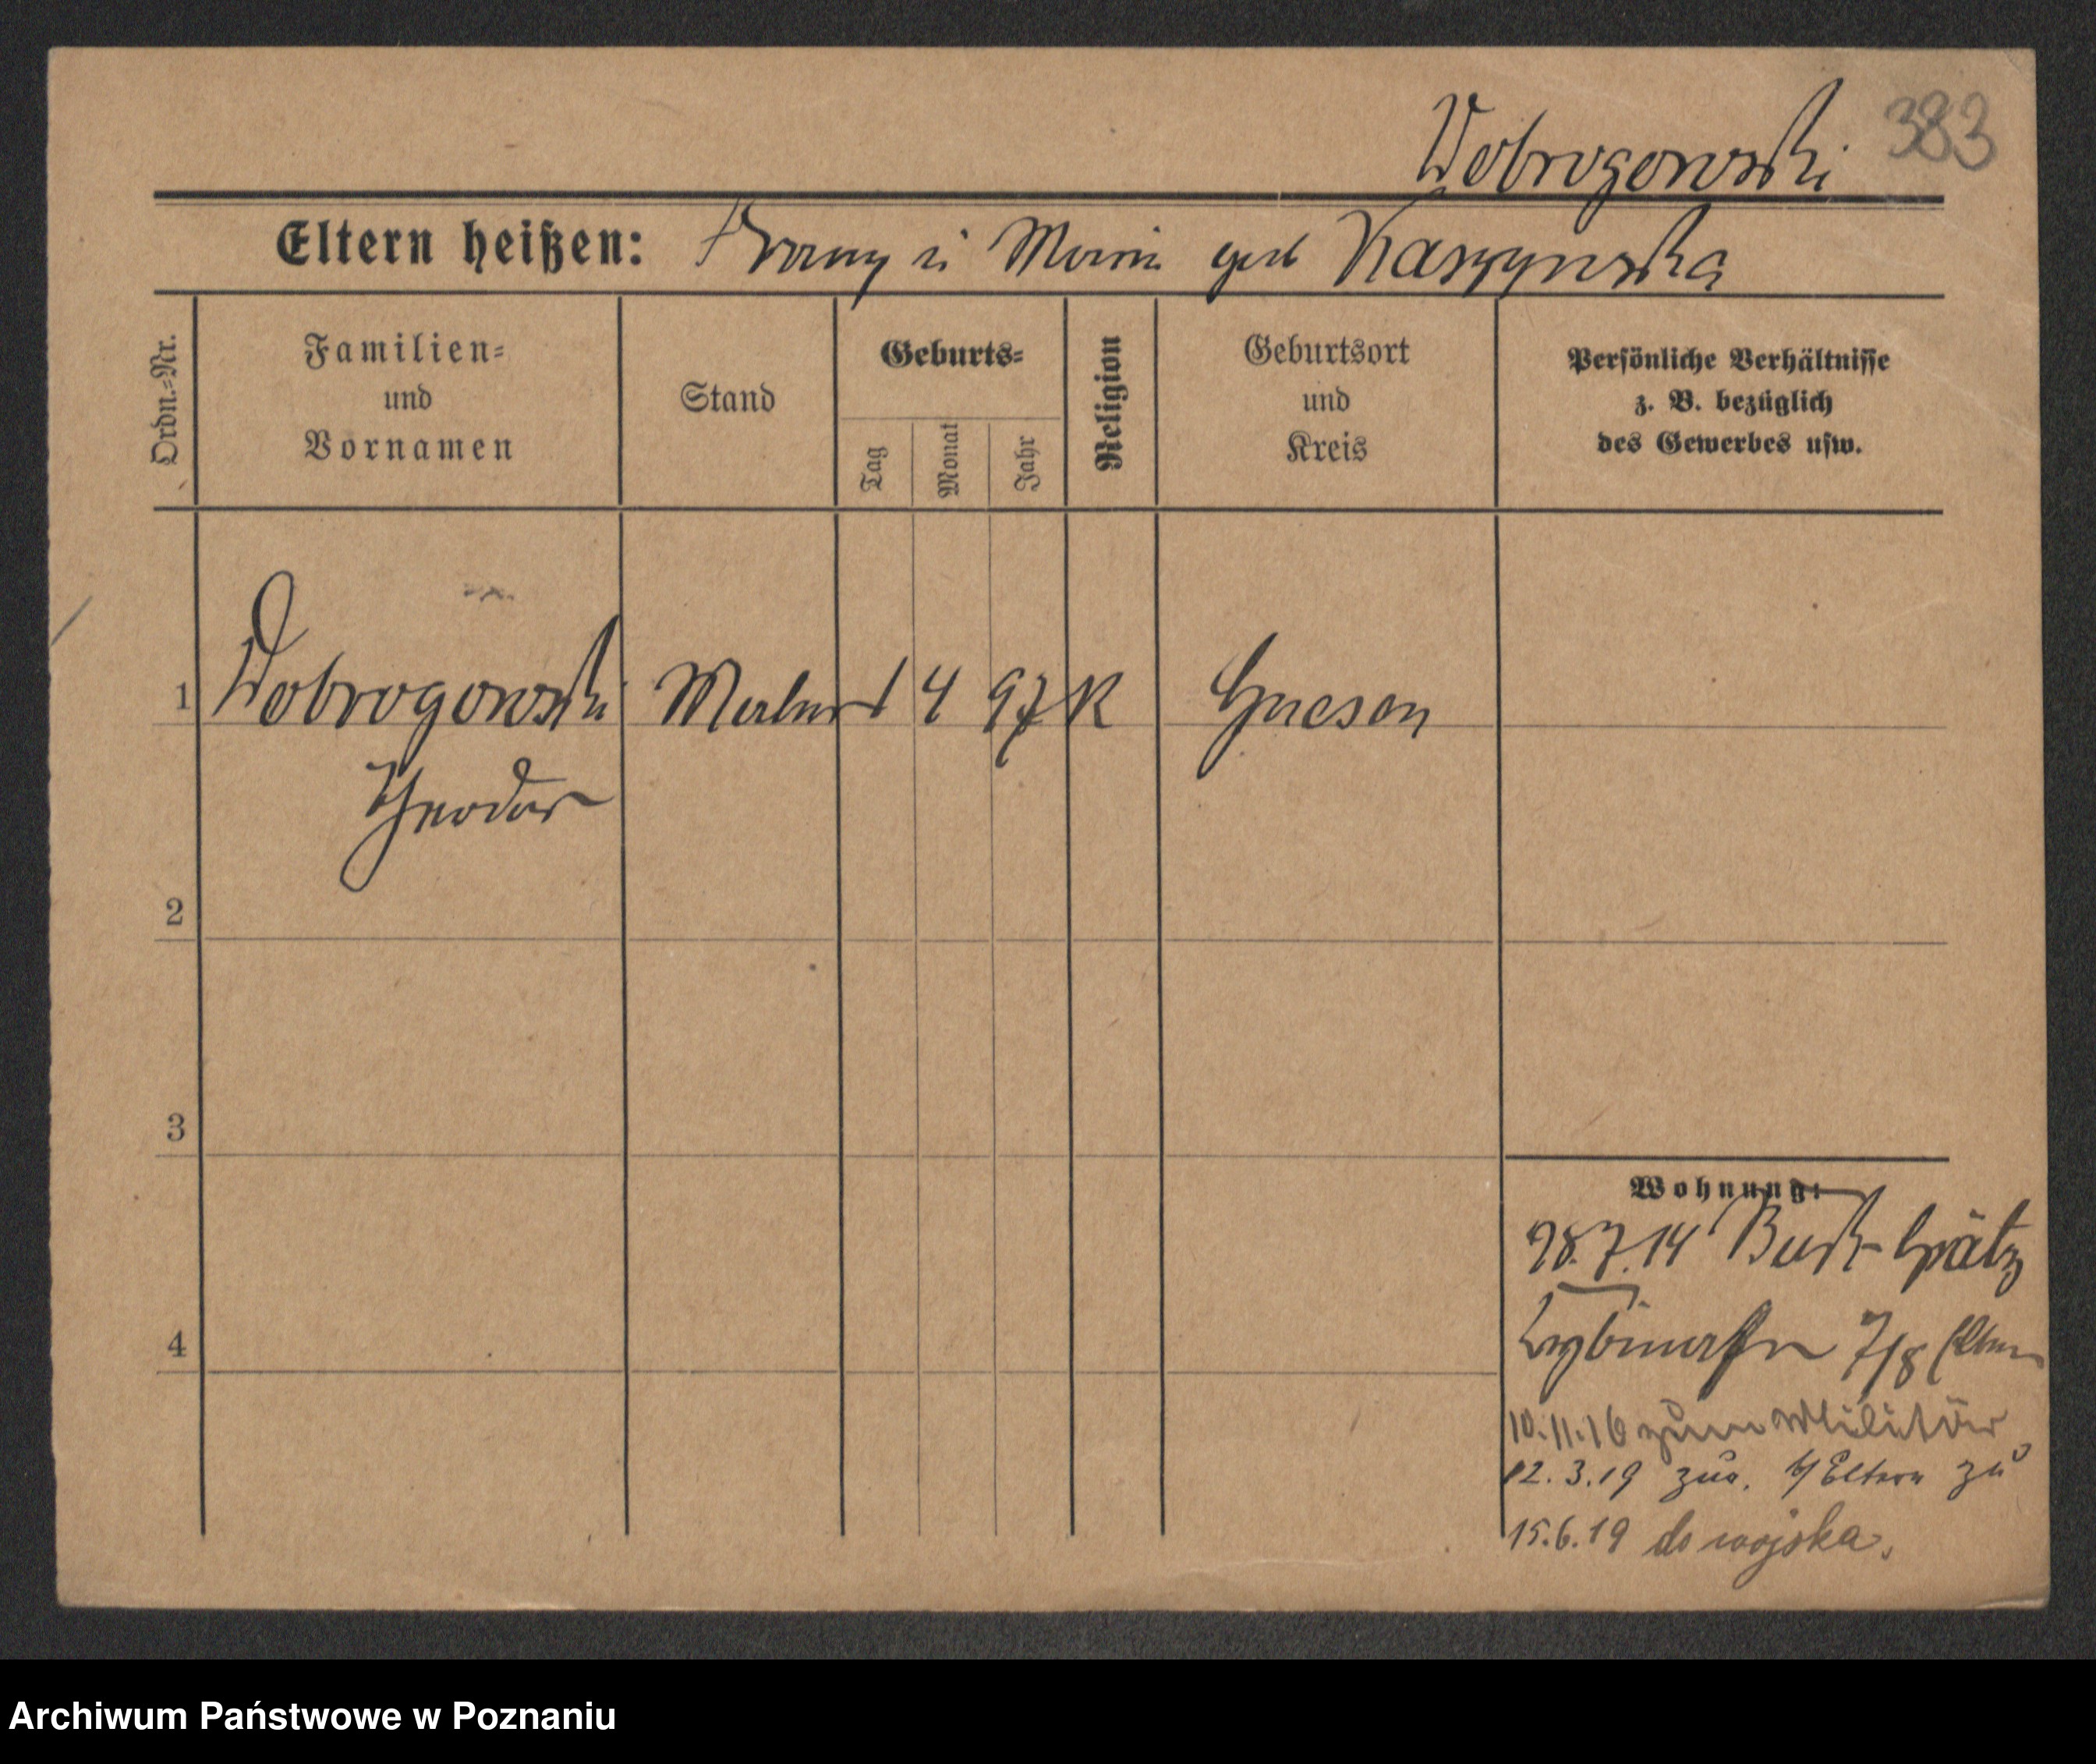 Dobrogowski 383
Eltern heißen: Franz u Maria geb Kaszynska
Ordn.=Nr.
Familien=
und
Vornamen
Stand
Geburts=
Tag
Monat
Jahr
Religion
Geburtsort
und
Kreis
Persönliche Verhältnisse
z. B. bezüglich
des Gewerbes usw.
1 Dobrogowski Maler 1 4 97 K Gnesen
Theodor
2
3
4
Wohnung:
28.7.14
7/8 Eltern
10.11.16 zum Militär
12.3.19 zur. b/Eltern zu
15.6.19 do wojska.
Archiwum Państwowe w Poznaniu